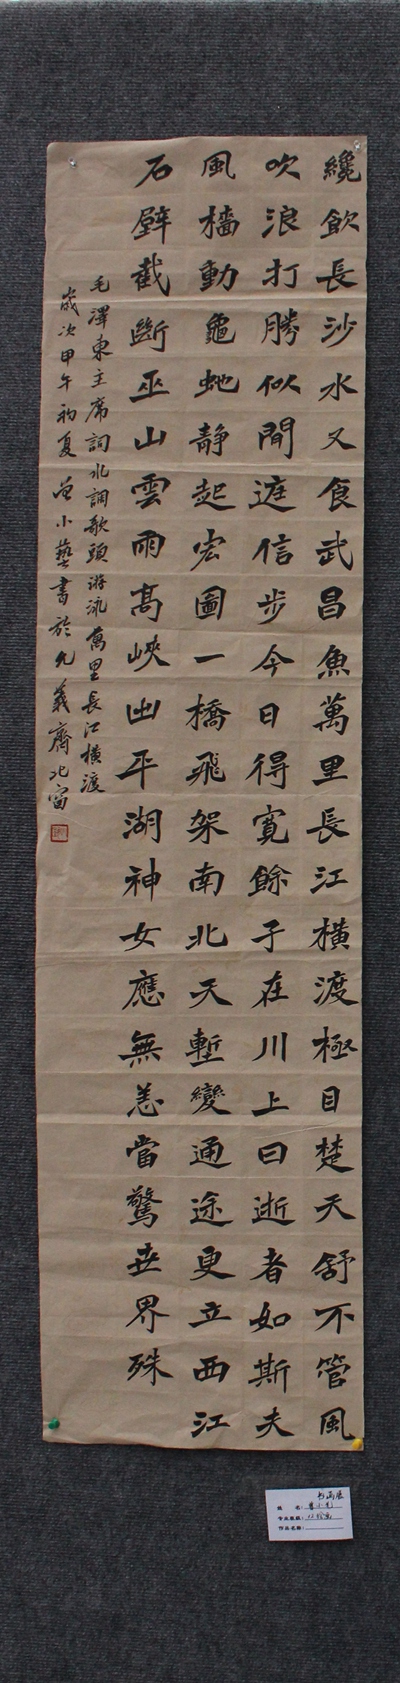 纔飲長沙水又食武昌魚萬里長江橫渡極目楚天舒不管風
吹浪打勝似閒庭信步今日得寬餘子在川上曰逝者如斯夫
風檣動龜虵靜起宏圖一橋飛架南北天塹變通途更立西江
石壁截斷巫山雲雨高峽出平湖神女應無恙當驚世界殊
毛澤東主席詞水調歌頭游泳萬里長江橫渡
歲次甲午初夏 小藝書於允義齋北窗
书画展
姓 名：
专业班级：
作品名称：